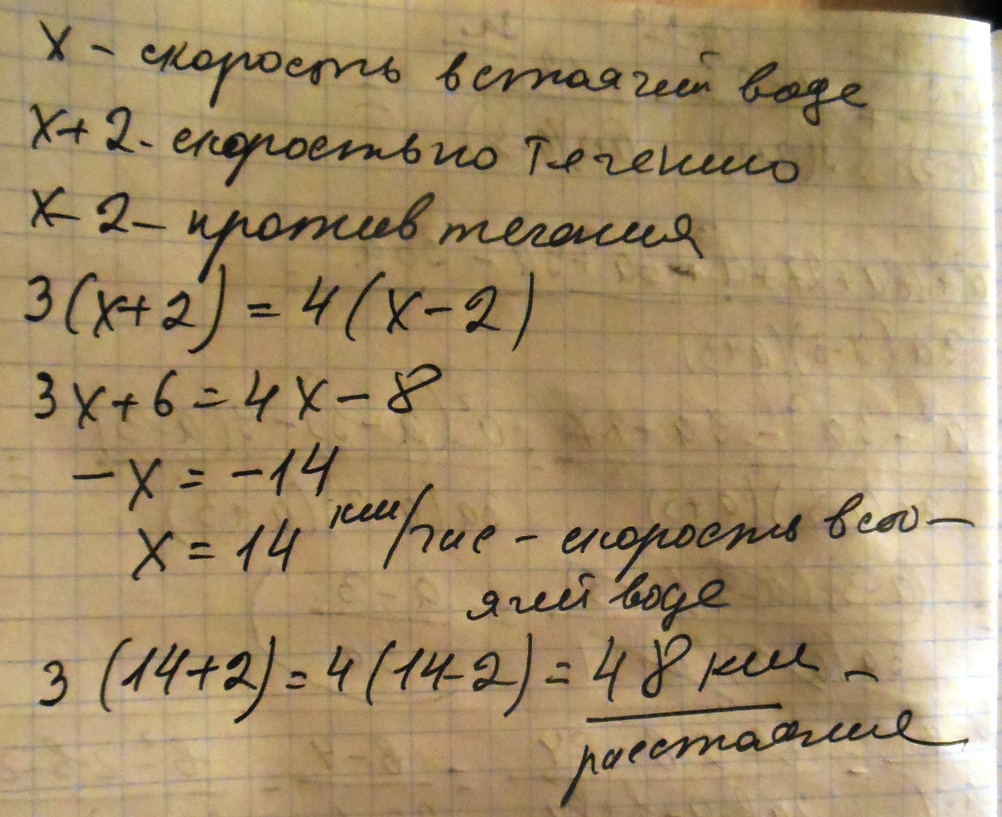 x - скорость в стоячей воде
x+2 - скорость по течению
x-2 - против течения
3(x+2) = 4(x-2)
3x+6 = 4x-8
-x = -14
x = 14 км/час - скорость в сто-
ячей воде
3(14+2) = 4(14-2) = 48 км -
расстояние